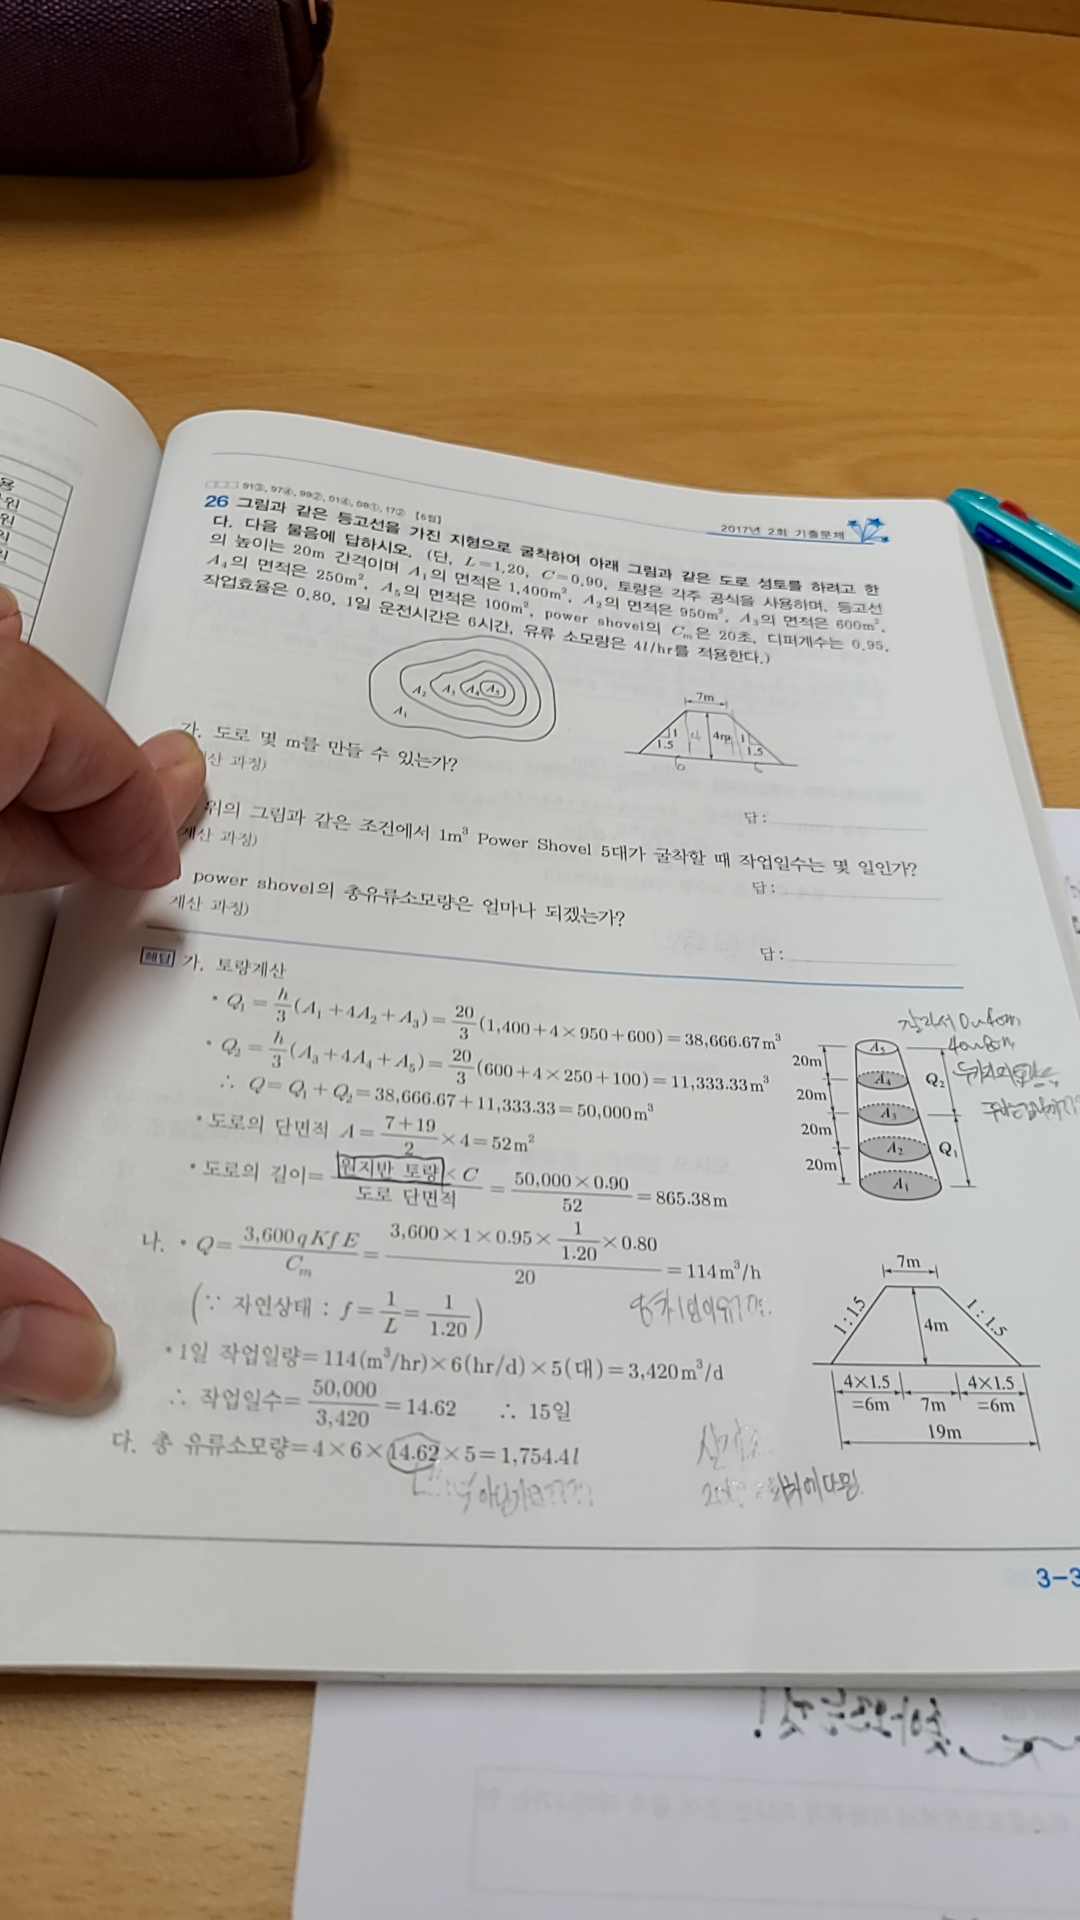 2017년 2회 기출문제
91③, 97④, 99②, 01④, 08①, 17② [6점]
26 그림과 같은 등고선을 가진 지형으로 굴착하여 아래 그림과 같은 도로 성토를 하려고 한
다. 다음 물음에 답하시오. (단, L=1.20, C=0.90, 토량은 각주 공식을 사용하며, 등고선
의 높이는 20m 간격이며 A₁의 면적은 1,400m², A₂의 면적은 950m², A₃의 면적은 600m²,
A₄의 면적은 250m², A₅의 면적은 100m², power shovel의 Cm은 20초, 디퍼계수는 0.95,
작업효율은 0.80, 1일 운전시간은 6시간, 유류 소모량은 4l/hr를 적용한다.)
A₁ A₂ A₃ A₄ A₅
7m
1 4 4m 1
1.5 1.5
6 6
가. 도로 몇 m를 만들 수 있는가?
산 과정)
답:
위의 그림과 같은 조건에서 1m³ Power Shovel 5대가 굴착할 때 작업일수는 몇 일인가?
계산 과정)
답:
power shovel의 총유류소모량은 얼마나 되겠는가?
계산 과정)
답:
해답 가. 토량계산
• Q₁ = h/3 (A₁+4A₂+A₃) = 20/3 (1,400+4×950+600) = 38,666.67m³
• Q₂ = h/3 (A₃+4A₄+A₅) = 20/3 (600+4×250+100) = 11,333.33m³
∴ Q = Q₁+Q₂ = 38,666.67+11,333.33 = 50,000m³
• 도로의 단면적 A = (7+19)/2 ×4 = 52m²
• 도로의 길이 = 원지반 토량×C / 도로 단면적 = 50,000×0.90 / 52 = 865.38m
20m
20m
20m
20m
A₅
A₄
A₃
A₂
A₁
Q₂
Q₁
나. • Q = 3,600qKfE / Cm = 3,600×1×0.95×1/1.20×0.80 / 20 = 114m³/h
(∵ 자연상태 : f = 1/L = 1/1.20)
• 1일 작업일량 = 114(m³/hr)×6(hr/d)×5(대) = 3,420m³/d
∴ 작업일수 = 50,000 / 3,420 = 14.62 ∴ 15일
다. 총 유류소모량 = 4×6×14.62×5 = 1,754.4l
7m
1:1.5
4m
1:1.5
4×1.5 4×1.5
=6m 7m =6m
19m
3-3